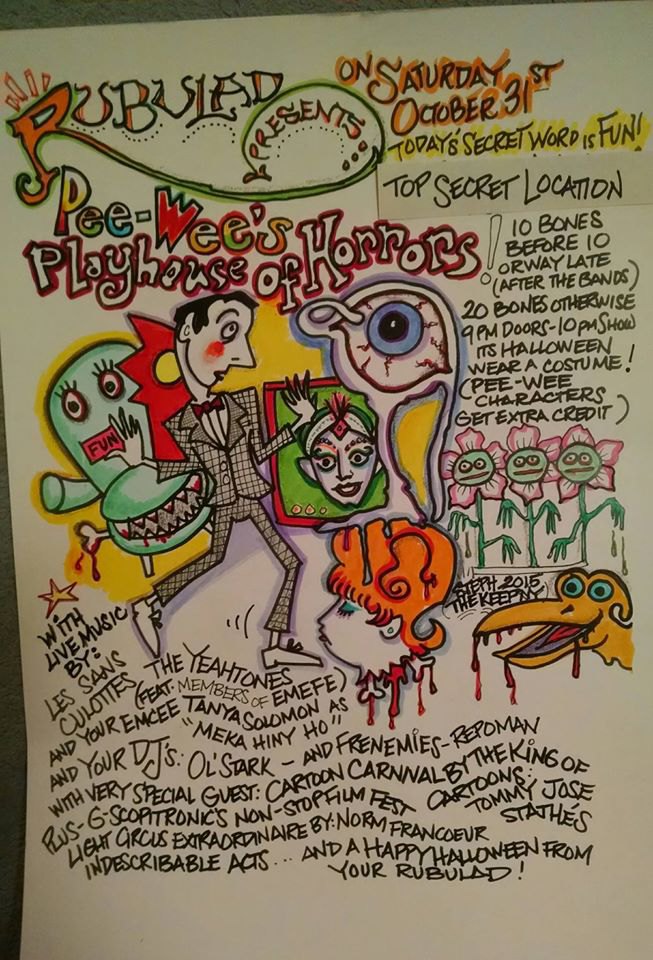 RUBULAD
PRESENTS...
ON SATURDAY
OCTOBER 31ST
TODAY'S SECRET WORD IS FUN!
TOP SECRET LOCATION
Pee-Wee's
Playhouse of Horrors!
10 BONES
BEFORE 10
OR WAY LATE
(AFTER THE BANDS)
20 BONES OTHERWISE
9 PM DOORS - 10 PM SHOW
ITS HALLOWEEN
WEAR A COSTUME!
(PEE-WEE
CHARACTERS
GET EXTRA CREDIT)
FUN
STEPH 2015
THEKEEPNY
WITH
LIVE MUSIC
BY:
LES SANS
CULOTTES
THE YEAHTONES
(FEAT. MEMBERS OF EMEFE)
AND YOUR EMCEE TANYA SOLOMON AS
"MEKA HINY HO"
AND YOUR DJ'S: OL'STARK - AND FRENEMIES - REPOMAN
WITH VERY SPECIAL GUEST: CARTOON CARNIVAL BY THE KING OF
CARTOONS:
TOMMY JOSE
STATHES
PLUS - G-SCOPITRONIC'S NON-STOP FILM FEST
LIGHT CIRCUS EXTRAORDINAIRE BY: NORM FRANCOEUR
INDESCRIBABLE ACTS... AND A HAPPY HALLOWEEN FROM
YOUR RUBULAD!